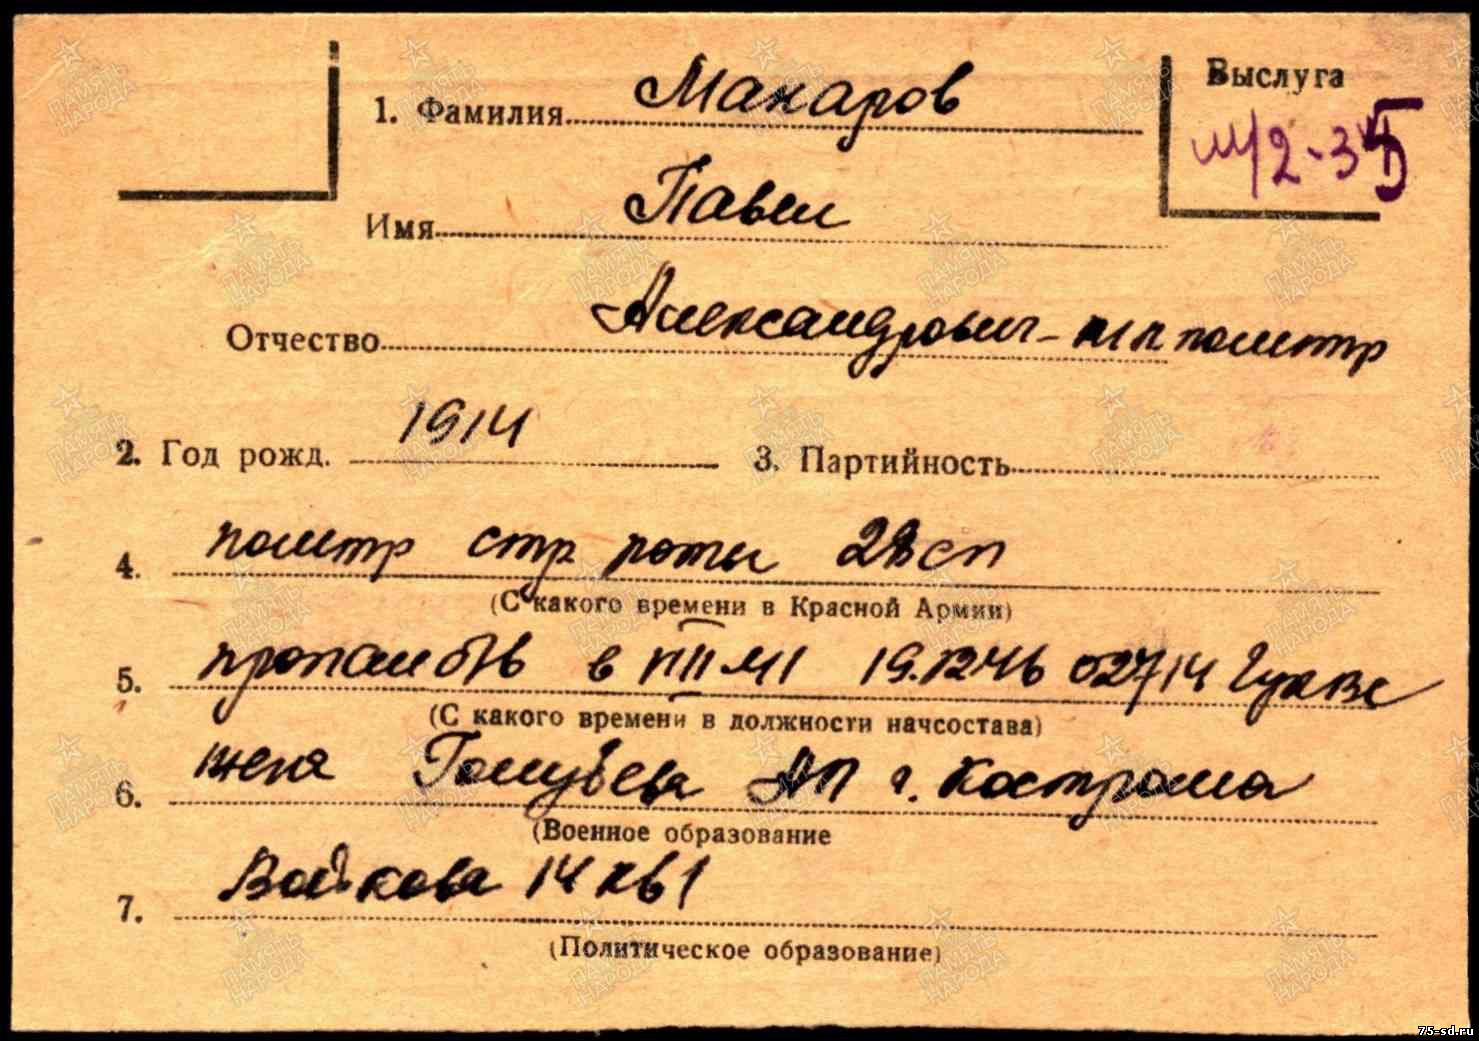 Выслуга
м/2-35
1. Фамилия Макаров
Имя Павел
Отчество Александрович - мл политр
2. Год рожд. 1914 3. Партийность
4. политр стр роты 28сп
(С какого времени в Красной Армии)
5. пропал б/в в III МI 19.12.46 02714 Гуквс
(С какого времени в должности начсостава)
6. жена Голубева АП г. Кострома
(Военное образование
7. Войкова 14 кв 1
(Политическое образование)
ПАМЯТЬ НАРОДА
75-sd.ru